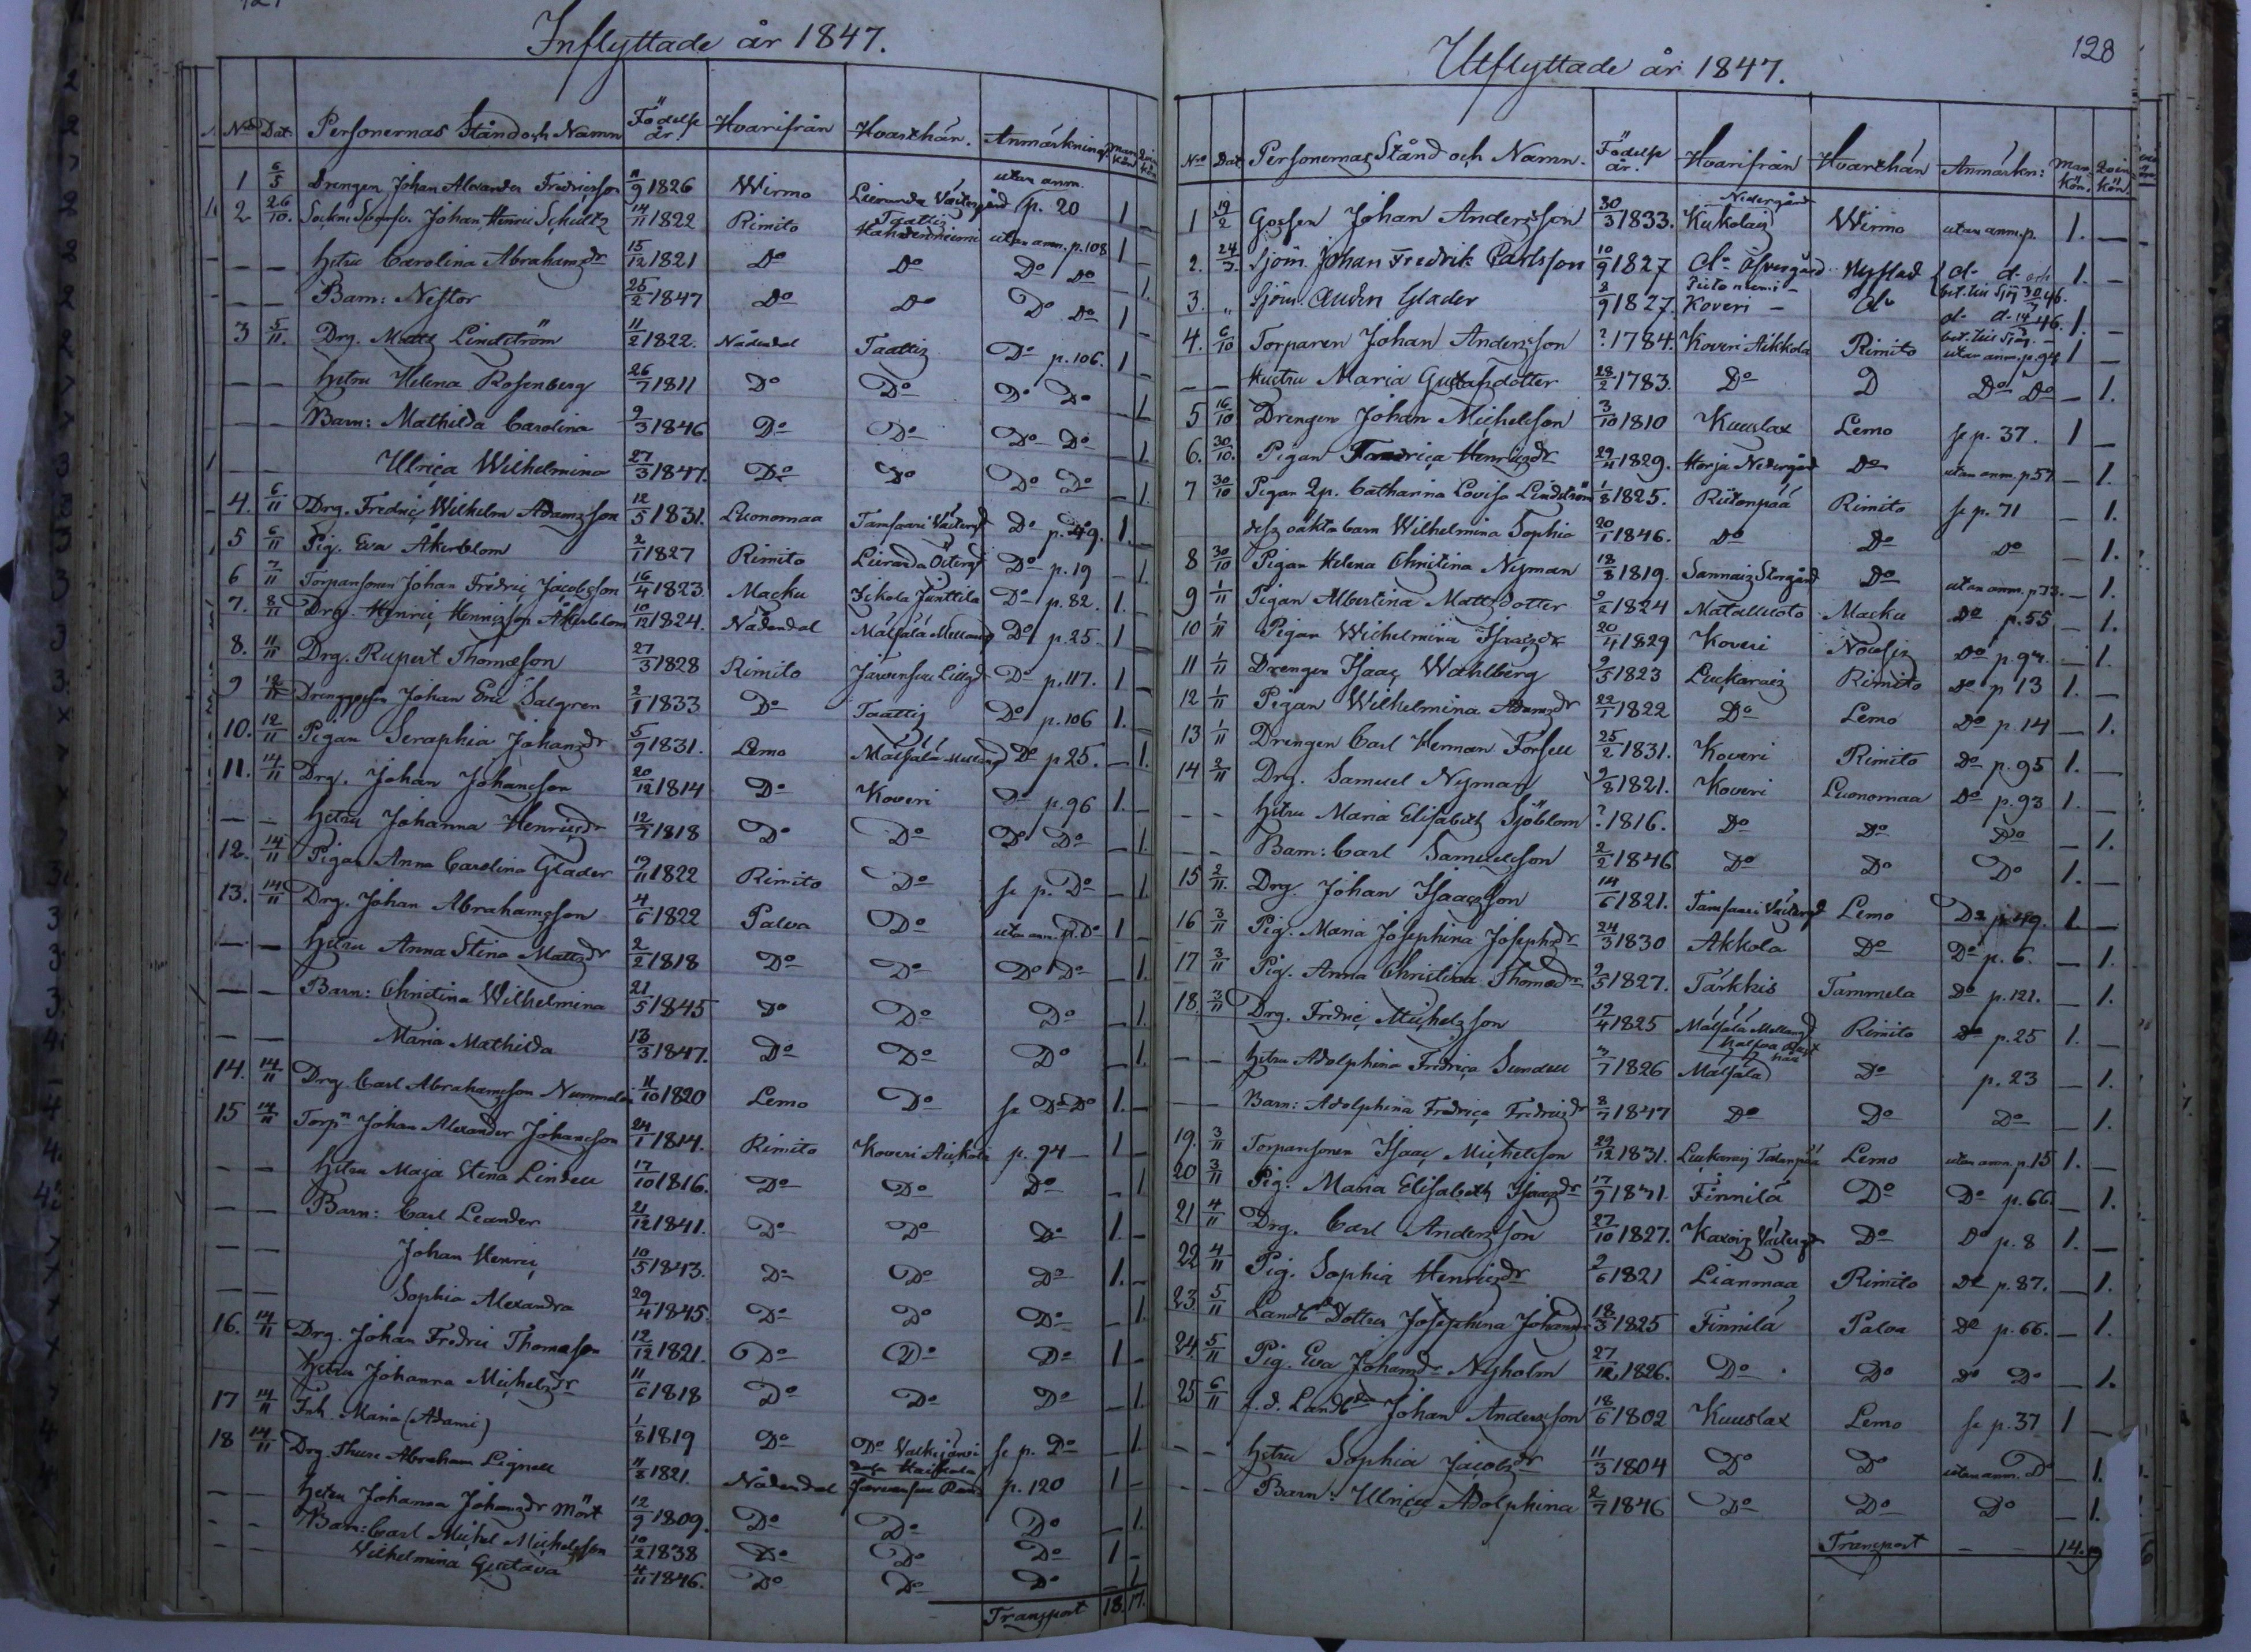 Inflyttade år 1847.
No Dat. Personernas Stånd och Namn Födelse år. Hvarifrån Hvarthän. Anmärkning Mankön Qvinkön
1 6/5 Drengen Johan Alexander Fredricsson 11/9 1826 Wirmo Livaranda Västergård utan anm. p. 20 1 –
2 26/10. Johan Henric Schultz 14/11 1822 Rimito Taattis utan anm. p. 108 1 –
– – hstru Carolina Abrahamsdr 15/12 1821 Do Do Do Do – 1.
– – Barn: Nestor 25/2 1847 Do Do Do Do 1 –
3 5/11. Drg. Matts Lindström 11/2 1822. Nådendal Taattis Do p. 106. 1 –
– – hstru Helena Rosenberg 26/7 1811 Do Do Do Do – 1.
– – Barn: Mathilda Carolina 9/3 1846 Do Do Do Do – 1.
– – Ulrica Wilhelmina 27/3 1847. Do Do Do Do – 1.
4. 6/11 Drg. Fredric Wilhelm Adamsson 12/5 1831. Luonomaa Tamsaari Västergd Do p. 49. 1. –
5 6/11 Pig. Eva Åkerblom 2/1 1827 Rimito Livaranda Östergd Do p. 19 – 1.
6 7/11 Torparesonen Johan Fredric Jacobsson 16/4 1823. Masku Isikola Junttila Do p. 82. 1. –
7. 8/11 Drg. Henric Henricsson Åkerblom 10/12 1824. Nådendal Mälsälä Mellang Do p. 25. 1 –
8. 11/11 Drg. Rupert Thomasson 27/3 1828 Rimito Järvensuu Lillgd Do p. 117. 1 –
9 12/11 Drenggossen Johan Eric Salgren 2/1 1833 Do Taattis Do p. 106 1. –
10. 12/11 Pigan Seraphia Johansdr 5/9 1831. Lemo Mälsälä Mellangd Do p 25. – 1.
11. 14/11 Drg. Johan Johansson 20/12 1814 Do Koveri Do p. 96 1. –
– – hstru Johanna Henricsdr 12/7 1818 Do Do Do Do – 1.
12. 14/11 Pigan Anna Carolina Glader 19/11 1822 Rimito Do se p. Do – 1.
13. 14/11 Drg. Johan Abrahamsson 4/6 1822 Palva Do utan anm. p. Do 1 –
– – hstru Anna Stina Mattsdr 2/2 1818 Do Do Do Do – 1.
– – Barn: Christina Wilhelmina 21/5 1845 Do Do Do – 1.
– – Maria Mathilda 13/3 1847. Do Do Do – 1.
14. 14/11 Drg. Carl Abrahamsson Nummelin 11/10 1820 Lemo Do se Do Do 1. –
15 14/11 Torpn Johan Alexander Johansson 24/1 1814. Rimito Koveri Äickola p. 94 1 –
– – hstru Maja Stina Lindell 17/10 1816. Do Do Do – 1
– – Barn: Carl Leander 21/12 1841. Do Do Do 1. –
– – Johan Henric 10/5 1843. Do Do Do 1. –
– – Sophia Alexandra 29/4 1845. Do Do Do – 1.
16. 14/11 Drg. Johan Fredric Thomasson 12/12 1821. Do Do Do 1 –
hstru Johanna Michelsdr 11/6 1818 Do Do Do – 1.
17 14/11 Inh. Maria (Adami) 1/8 1819 Do Do Valkijärvi se p. Do – 1.
18 14/11 Drg. Thure Abraham Lignell 11/8 1821. Nådendal Järvensuu p. 120 1 –
– – hstru Johanna Johansdr Mört 12/9 1809. Do Do Do – 1.
– – Barn: Carl Michel Michelsson 10/2 1838 Do Do Do 1 –
– – Wilhelmina Gustava 4/11 1846. Do Do Do – 1
Transport 18. 17.
128
Utflyttade år 1847.
No Dat. Personernas Stånd och Namn. Födelse år. Hvarifrån Hvarthän Anmärkn: Mankön. Qvinkön.
1 19/2 Gossen Johan Andersson 30/3 1833. Kukolais Nedergård Wirmo utan anm. p. 1. –
2. 24/7. Sjöm. Johan Fredrik Carlsson 10/9 1827 do Öfvergård Nystad do do och bet. till Sjös 30/7 46. 1. –
3. " Sjöm. Auden Glader 8/9 1827. Koveri – do do do 14/3 46. bet. till Sjös. – 1. –
4. 6/10 Torparen Johan Andersson ? 1784. Koveri Äikkola Rimito utan anm. p. 94 1 –
– – hustru Maria Gustafsdotter 28/2 1783. Do D Do Do – 1.
5 16/10 Drengen Johan Michelsson 3/10 1810 Kuuslax Lemo se p. 37. 1 –
6. 30/10. Pigan Fredrica Henricsdr 29/4 1829. Horja Nedergård Do utan anm. p 57 – 1.
7 30/10 Pigan Qp. Catharina Lovisa Lindström 1/8 1825. Riitonpää Rimito se p. 71 – 1.
dess oäkta barn Wilhelmina Sophia 20/1 1846. Do Do Do – 1.
8 30/10 Pigan Helena Christina Nyman 18/8 1819. Sannais Storgård Do utan anm. p 73. – 1.
9 1/11 Pigan Albertina Mattsdotter 9/2 1824 Matalluoto Masku Do p. 55 – 1.
10 1/11 Pigan Wilhelmina Isaacsdr 20/4 1829 Koveri Nousis Do p. 94. – 1.
11 1/11 Drengen Isaac Wahlberg 9/5 1823 Luckarais Rimito Do p 13 1. –
12 1/11 Pigan Wilhelmina Adamsdr 22/1 1822 Do Lemo Do p. 14 – 1.
13 1/11 Drengen Carl Herman Forsell 25/2 1831. Koveri Rimito Do p. 95 1. –
14 2/11 Drg. Samuel Nyman 9/8 1821. Koveri Luonomaa Do p. 93 1. –
– – hstru Maria Elisabeth Sjöblom ? 1816. Do Do Do – 1.
– – Barn: Carl Samuelsson 2/2 1846 Do Do Do 1. –
15 2/11. Drg. Johan Isaacsson 14/6 1821. Tamsaari Västergd Lemo Do p. 49. 1. –
16 3/11 Pig. Maria Josephina Josephsdr 24/3 1830 Akkola Do Do p. 6. – 1.
17 3/11 Pig. Anna Christina Thomasdr 9/5 1827. Tärkkis Tammela Do p. 121. – 1.
18. 3/11 Drg. Fredric Michelsson 12/4 1825 Mälsälä Mellangd Rimito Do p. 25 1. –
– – hstru Adolphina Fredrica Sundell 3/7 1826 Mälsälä Do p. 23 – 1.
– – Barn: Adolphina Fredrica Fredricsdr 8/7 1847 Do Do Do – 1.
19. 3/11 Torparesonen Isaac Michelsson 29/12 1831. Luckarais Talanpää Lemo utan anm. p. 15 1. –
20 3/11 Pig. Maria Elisabeth Isaacsdr 17/9 1831. Finnilä Do Do p. 66. – 1.
21 4/11 Drg. Carl Andersson 27/10 1827. Kaxois Västergd Do Do p. 8 1. –
22 4/11 Pig. Sophia Henricsdr 2/6 1821 Lianmaa Rimito Do p. 87. – 1.
23. 5/11 Landb. Dottren Josephina Johansdr 18/3 1825 Finnilä Palva Do p. 66. – 1.
24. 5/11 Pig. Eva Johansdr Nyholm 27/12 1826. Do Do Do Do – 1.
25 6/11 f. d. Landb. Johan Andersson 18/6 1802 Kuuslax Lemo se p. 37 1 –
– – hstru Sophia Jacobsdr 11/3 1804 Do Do utan anm. Do – 1.
– – Barn: Ulrica Adolphina 2/7 1846 Do Do Do – 1.
Transport – – 14.